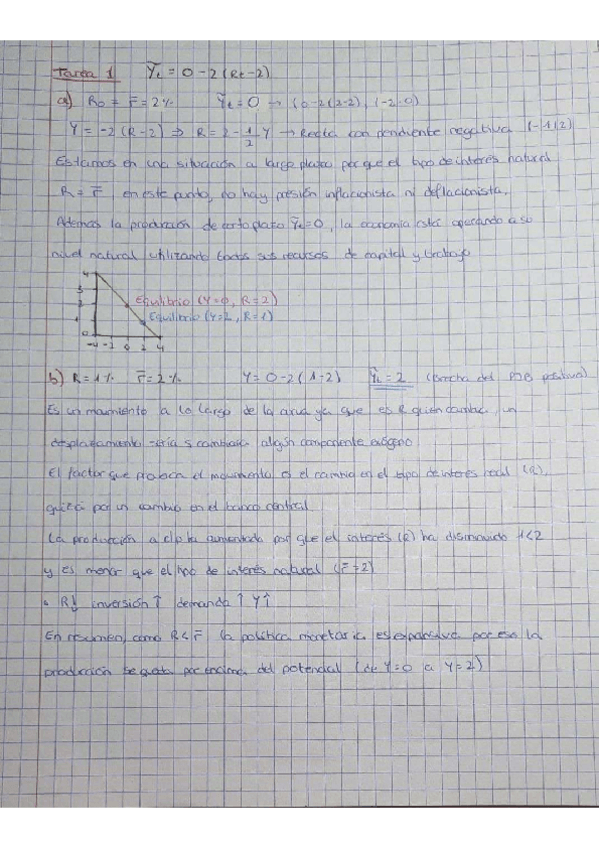 Tarea 1 Ỹt = 0 - 2 (Rt - 2)
a) R0 = r̄ = 2% Ỹt = 0 → (0 - 2(2-2), (-2·0)
Y = -2 (R - 2) ⇒ R = 2 - 1/2 Y → Recta con pendiente negativa (-1/2)
Estamos en una situación a largo plazo porque el tipo de interés natural
R = r̄, en este punto, no hay presión inflacionista ni deflacionista.
Además la producción de corto plazo Ỹt=0, la economía está operando a su
nivel natural utilizando todos sus recursos de capital y trabajo
4
3
2 Equilibrio (Y=0, R=2)
1 Equilibrio (Y=2, R=1)
0
-4 -2 0 2 4
b) R = 1% r̄ = 2% Y = 0 - 2 (1-2) Ỹt = 2 (brecha del PIB positiva)
Es un movimiento a lo largo de la curva ya que es R quien cambia, un
desplazamiento sería si cambiase algún componente exógeno
El factor que provoca el movimiento es el cambio en el tipo de interés real (R),
quizá por un cambio en el banco central
La producción a c/p ha aumentado por que el interés (R) ha disminuido 1<2
y es menor que el tipo de interés natural (r̄=2)
R↓ inversión ↑ demanda ↑ Y↑
En resumen, como R< r̄ la política monetaria es expansiva por eso la
producción se queda por encima del potencial (de Y=0 a Y=2)